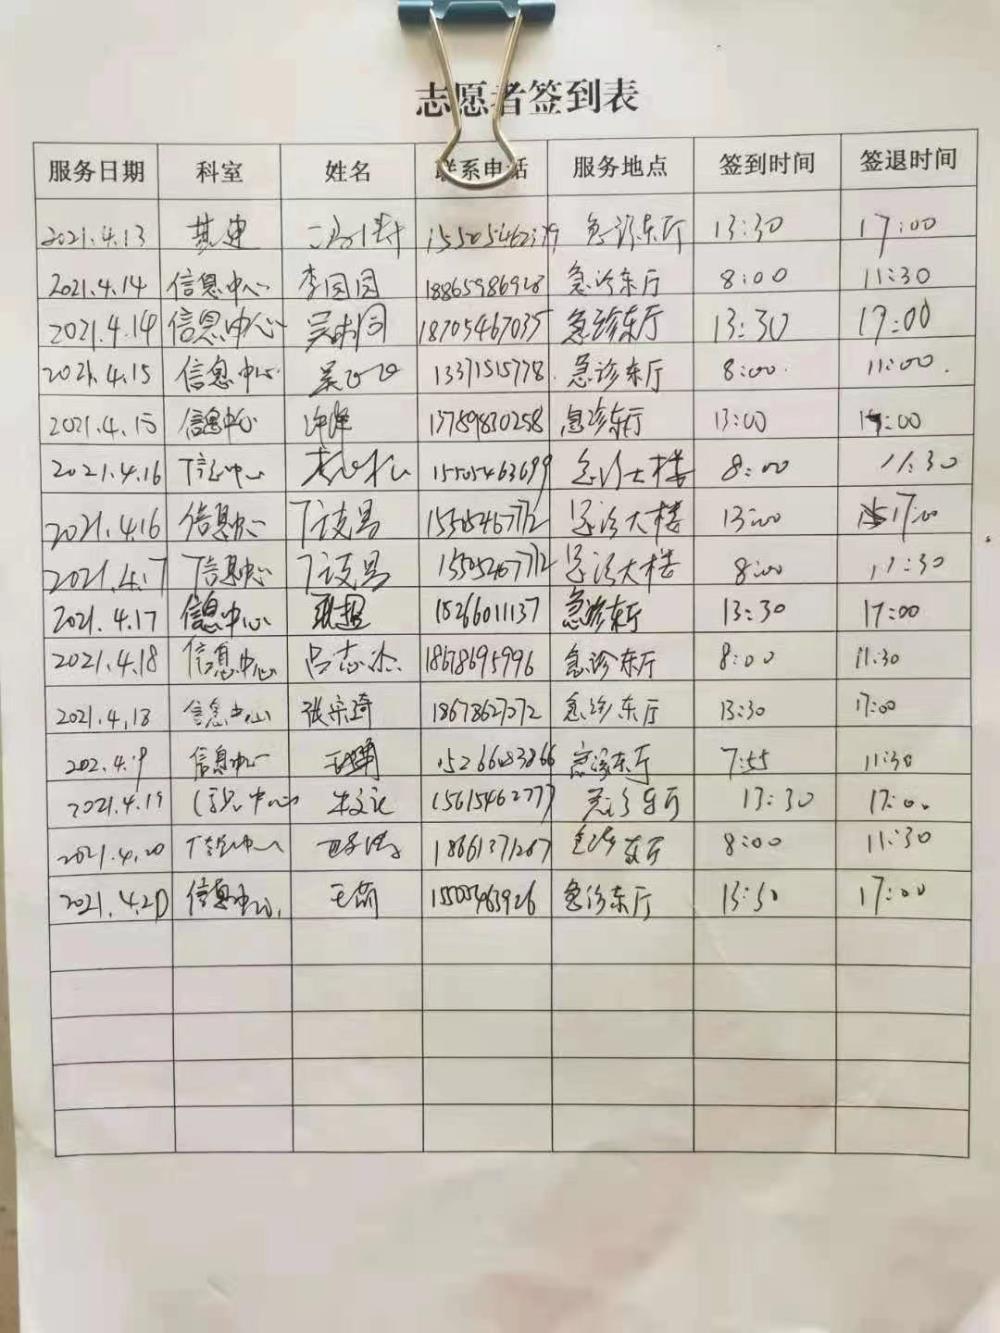 志愿者签到表
服务日期 科室 姓名 联系电话 服务地点 签到时间 签退时间
2021.4.13 基建 急诊东厅 13:30 17:00
2021.4.14 信息中心 李园园 急诊东厅 8:00 11:30
2021.4.14 信息中心 18705467035 急诊东厅 13:30 17:00
2021.4.15 信息中心 13371515778 急诊东厅 8:00 11:00
2021.4.15 信息中心 许峰 13789830258 急诊东厅 13:00 17:00
2021.4.16 信息中心 15505463699 急诊大楼 8:00 11:30
2021.4.16 信息中心 急诊大楼 13:00 17:00
2021.4.17 信息中心 急诊大楼 8:00 11:30
2021.4.17 信息中心 15266011137 急诊东厅 13:30 17:00
2021.4.18 信息中心 吕志杰 18678695996 急诊东厅 8:00 11:30
2021.4.18 信息中心 张宗琦 18678627272 急诊东厅 13:30 17:00
202.4.19 信息中心 急诊东厅 7:55 11:30
2021.4.19 信息中心 15615462777 急诊东厅 13:30 17:00
2021.4.20 信息中心 18661371267 急诊东厅 8:00 11:30
2021.4.20 信息中心 15505463926 急诊东厅 13:30 17:00